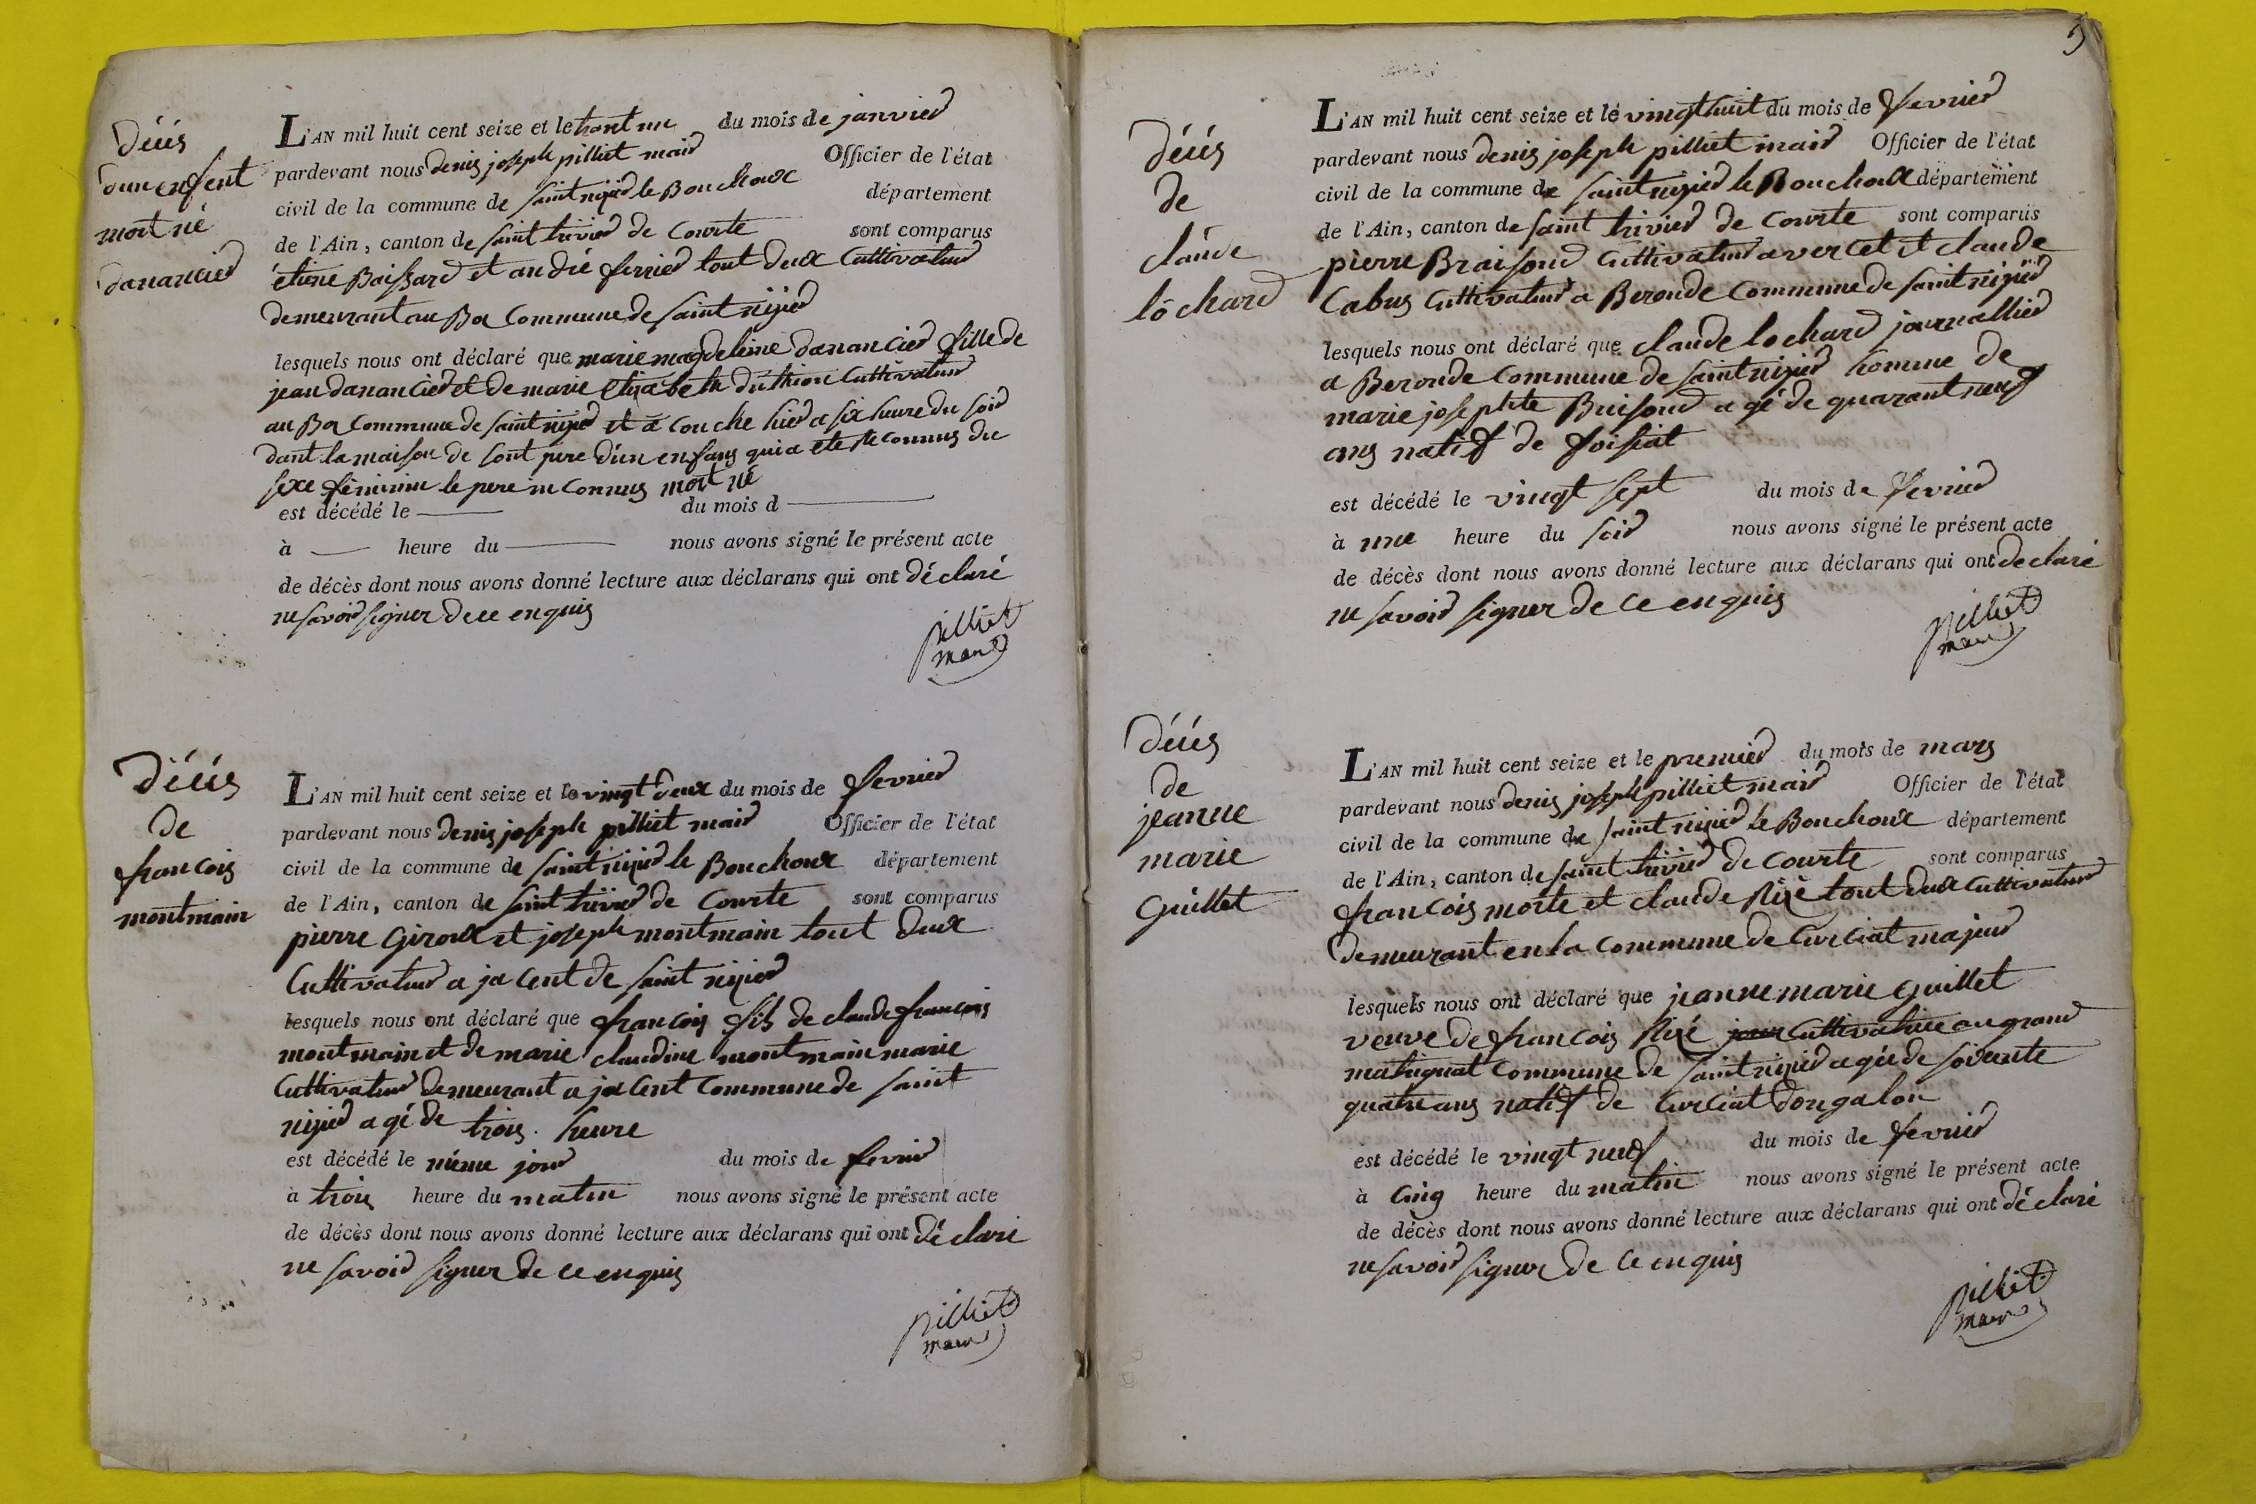 Décés
d'un enfent
mort né
danancier
L'AN mil huit cent seize et le trent un du mois de janvier
pardevant nous denis joseph pilliet maire Officier de l'état
civil de la commune de saint nizier le Bouchoux département
de l'Ain, canton de saint trivier de Courte sont comparus
étiene Boissard et andré ferrier tout deux Cultivateur
demeurant au Bos Commune de saint nizier
lesquels nous ont déclaré que marie magdeleine danancier fille de
jean danancier et de marie elizabeth duthion Cultivateur
au Bos commune de saint nizier et à couche hier a six heure du soir
dant la maison de sont pere d'un enfans qui a ete reconnus du
sexe féminin le pere inconnus mort né
est décédé le du mois d
à heure du nous avons signé le présent acte
de décès dont nous avons donné lecture aux déclarans qui ont déclaré
ne savoir signer de ce enquis
pilliet
maire
Décés
de
francois
montmain
L'AN mil huit cent seize et le vingt deux du mois de fevrier
pardevant nous denis joseph pilliet maire Officier de l'état
civil de la commune de saint nizier le Bouchoux département
de l'Ain, canton de saint trivier de Courte sont comparus
pierre Giroux et joseph montmain tout deux
Cultivateur a jacent de saint nizier
lesquels nous ont déclaré que francois fils de claude francois
montmain et de marie claudine montmain marie
Cultivateur demeurant a jacent Commune de saint
nizier agé de trois heure
est décédé le même jour du mois de fevrier
à trois heure du matin nous avons signé le présent acte
de décès dont nous avons donné lecture aux déclarans qui ont déclaré
ne savoir signer de ce enquis
pilliet
maire
5
Décés
de
claude
lochard
L'AN mil huit cent seize et le vingt huit du mois de fevrier
pardevant nous denis joseph pilliet maire Officier de l'état
civil de la commune de saint nizier le Bouchoux département
de l'Ain, canton de saint trivier de Courte sont comparus
pierre Braisoud Cultivateur a vercet et claude
Cabus Cultivateur a Beronde Commune de saint nizier
lesquels nous ont déclaré que claude lochard journallier
a Beronde commune de saint nizier homme de
marie josephte Buisoud agé de quarant neuf
ans natif de foisiat
est décédé le vingt sept du mois de fevrier
à une heure du soir nous avons signé le présent acte
de décès dont nous avons donné lecture aux déclarans qui ont declaré
ne savoir signer de ce enquis
pilliet
maire
Décés
de
jeanne
marie
Guillet
L'AN mil huit cent seize et le premier du mois de mars
pardevant nous denis joseph pilliet maire Officier de l'état
civil de la commune de saint nizier le Bouchoux département
de l'Ain, canton de saint trivier de Courte sont comparus
francois morte et claude Rizé tout deux Cultivateur
demeurant en la commune de Curciat majeur
lesquels nous ont déclaré que jeanne marie Guillet
veuve de francois Rizé jour Cultivatrice au grand
matignat commune de saint nizier agée de soixente
quatre ans natif de Curciat dongalon
est décédé le vingt neuf du mois de fevrier
à Cinq heure du matin nous avons signé le présent acte
de décès dont nous avons donné lecture aux déclarans qui ont déclaré
ne savoir signer de ce enquis
pilliet
maire